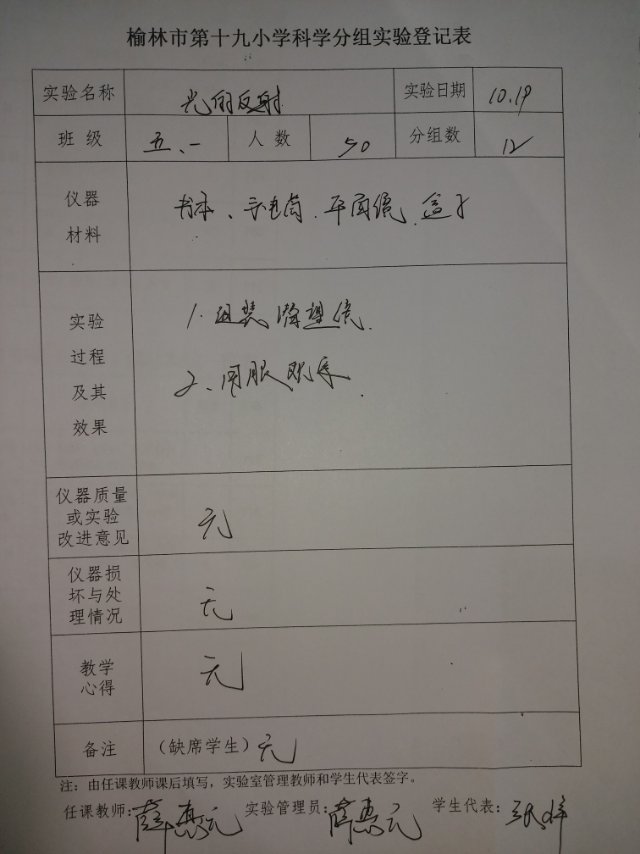 榆林市第十九小学科学分组实验登记表
实验名称 光的反射 实验日期 10.19
班 级 五、一 人 数 50 分组数 12
仪器
材料
书本、手电筒、平面镜、盒子
实验
过程
及其
效果
1. 组装潜望镜.
2、用眼观察.
仪器质量
或实验
改进意见
无
仪器损
坏与处
理情况
无
教学
心得
无
备注 (缺席学生) 无
注: 由任课教师课后填写，实验室管理教师和学生代表签字。
任课教师: 薛惠元 实验管理员: 薛惠元 学生代表: